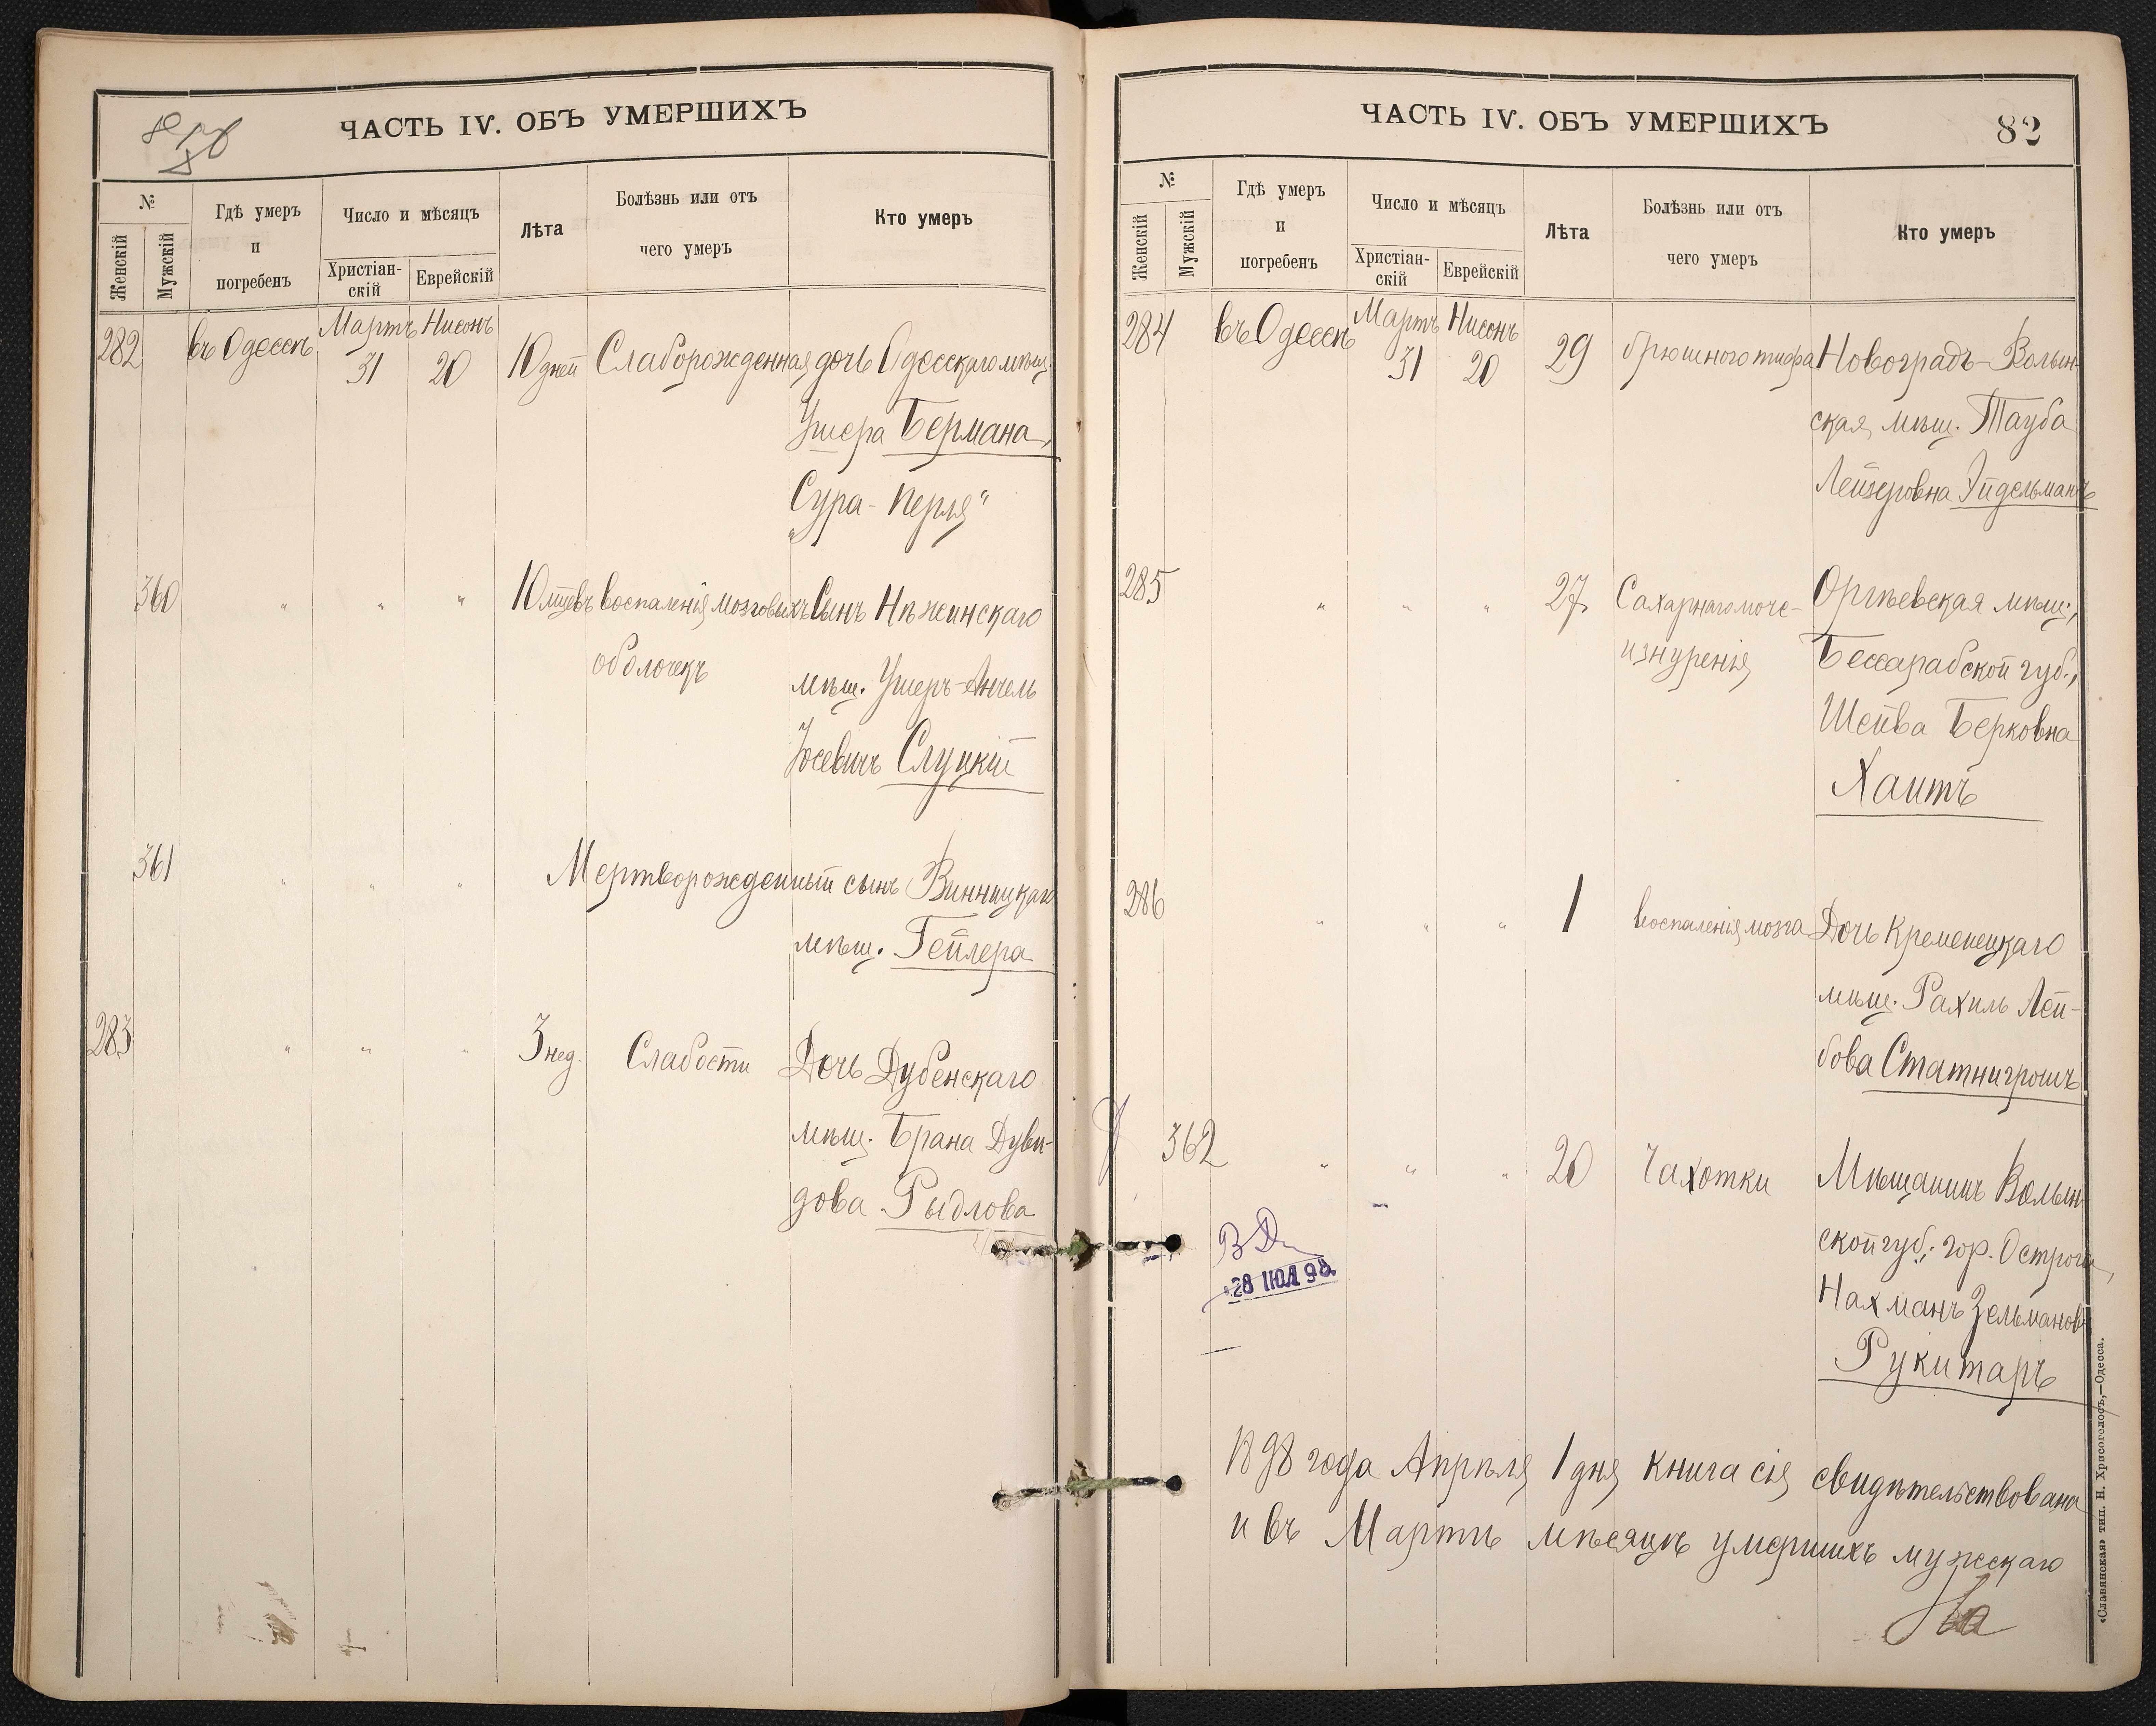 ЧАСТЬ IV. ОБЪ УМЕРШИХЪ
№
Женскій
Мужскій
Гдѣ умеръ
и
погребенъ
Число и мѣсяцъ
Христіан-
скій
Еврейскій
Лѣта
Болѣзнь или отъ
чего умеръ
Кто умеръ
282 въ Одессѣ Мартъ 31 Нисонъ 20 10 дней Слаборожденная дочь Одесскаго мѣщ.
Ушера Бермана,
„Сура-Перля“
360 " " " 10 мцевъ воспаленія мозговыхъ Сынъ Нѣжинскаго
оболочекъ
мѣщ. Ушеръ-Анчель
Іосевичъ Слуцкій
361 " " " Мертворожденный сынъ Винницкаго
мѣщ. Гейлера
283 " " " 3 нед. Слабости Дочь Дубенскаго
мѣщ. Брана Дуви-
дова Рыдлова
ЧАСТЬ IV. ОБЪ УМЕРШИХЪ
82
№
Женскій
Мужскій
Гдѣ умеръ
и
погребенъ
Число и мѣсяцъ
Христіан-
скій
Еврейскій
Лѣта
Болѣзнь или отъ
чего умеръ
Кто умеръ
284 въ Одессѣ Мартъ 31 Нисонъ 20 29 брюшного тифа Новоградъ-Волын-
ская мѣщ. Тауба
Лейзеровна Эйдельманъ
285 " " " 27 Сахарнаго моче- Оргѣевская мѣщ.,
изнуренія Бессарабской губ.,
Шейва Берковна
Хаитъ
286 " " " 1 воспаленія мозга Дочь Кременецкаго
мѣщ. Рахиль Лей-
бова Статнигрошъ
362 " " " 20 Чахотки Мѣщанинъ Волын-
ской губ., гор. Острога,
Нахманъ Зельмановъ
Рукитаръ
28 ІЮЛ 98.
1898 года Апрѣля 1 дня книга сія свидѣтельствована
и въ Мартѣ мѣсяцѣ умершихъ мужскаго
«Славянская» тип. Н. Хрисогелосъ,—Одесса.